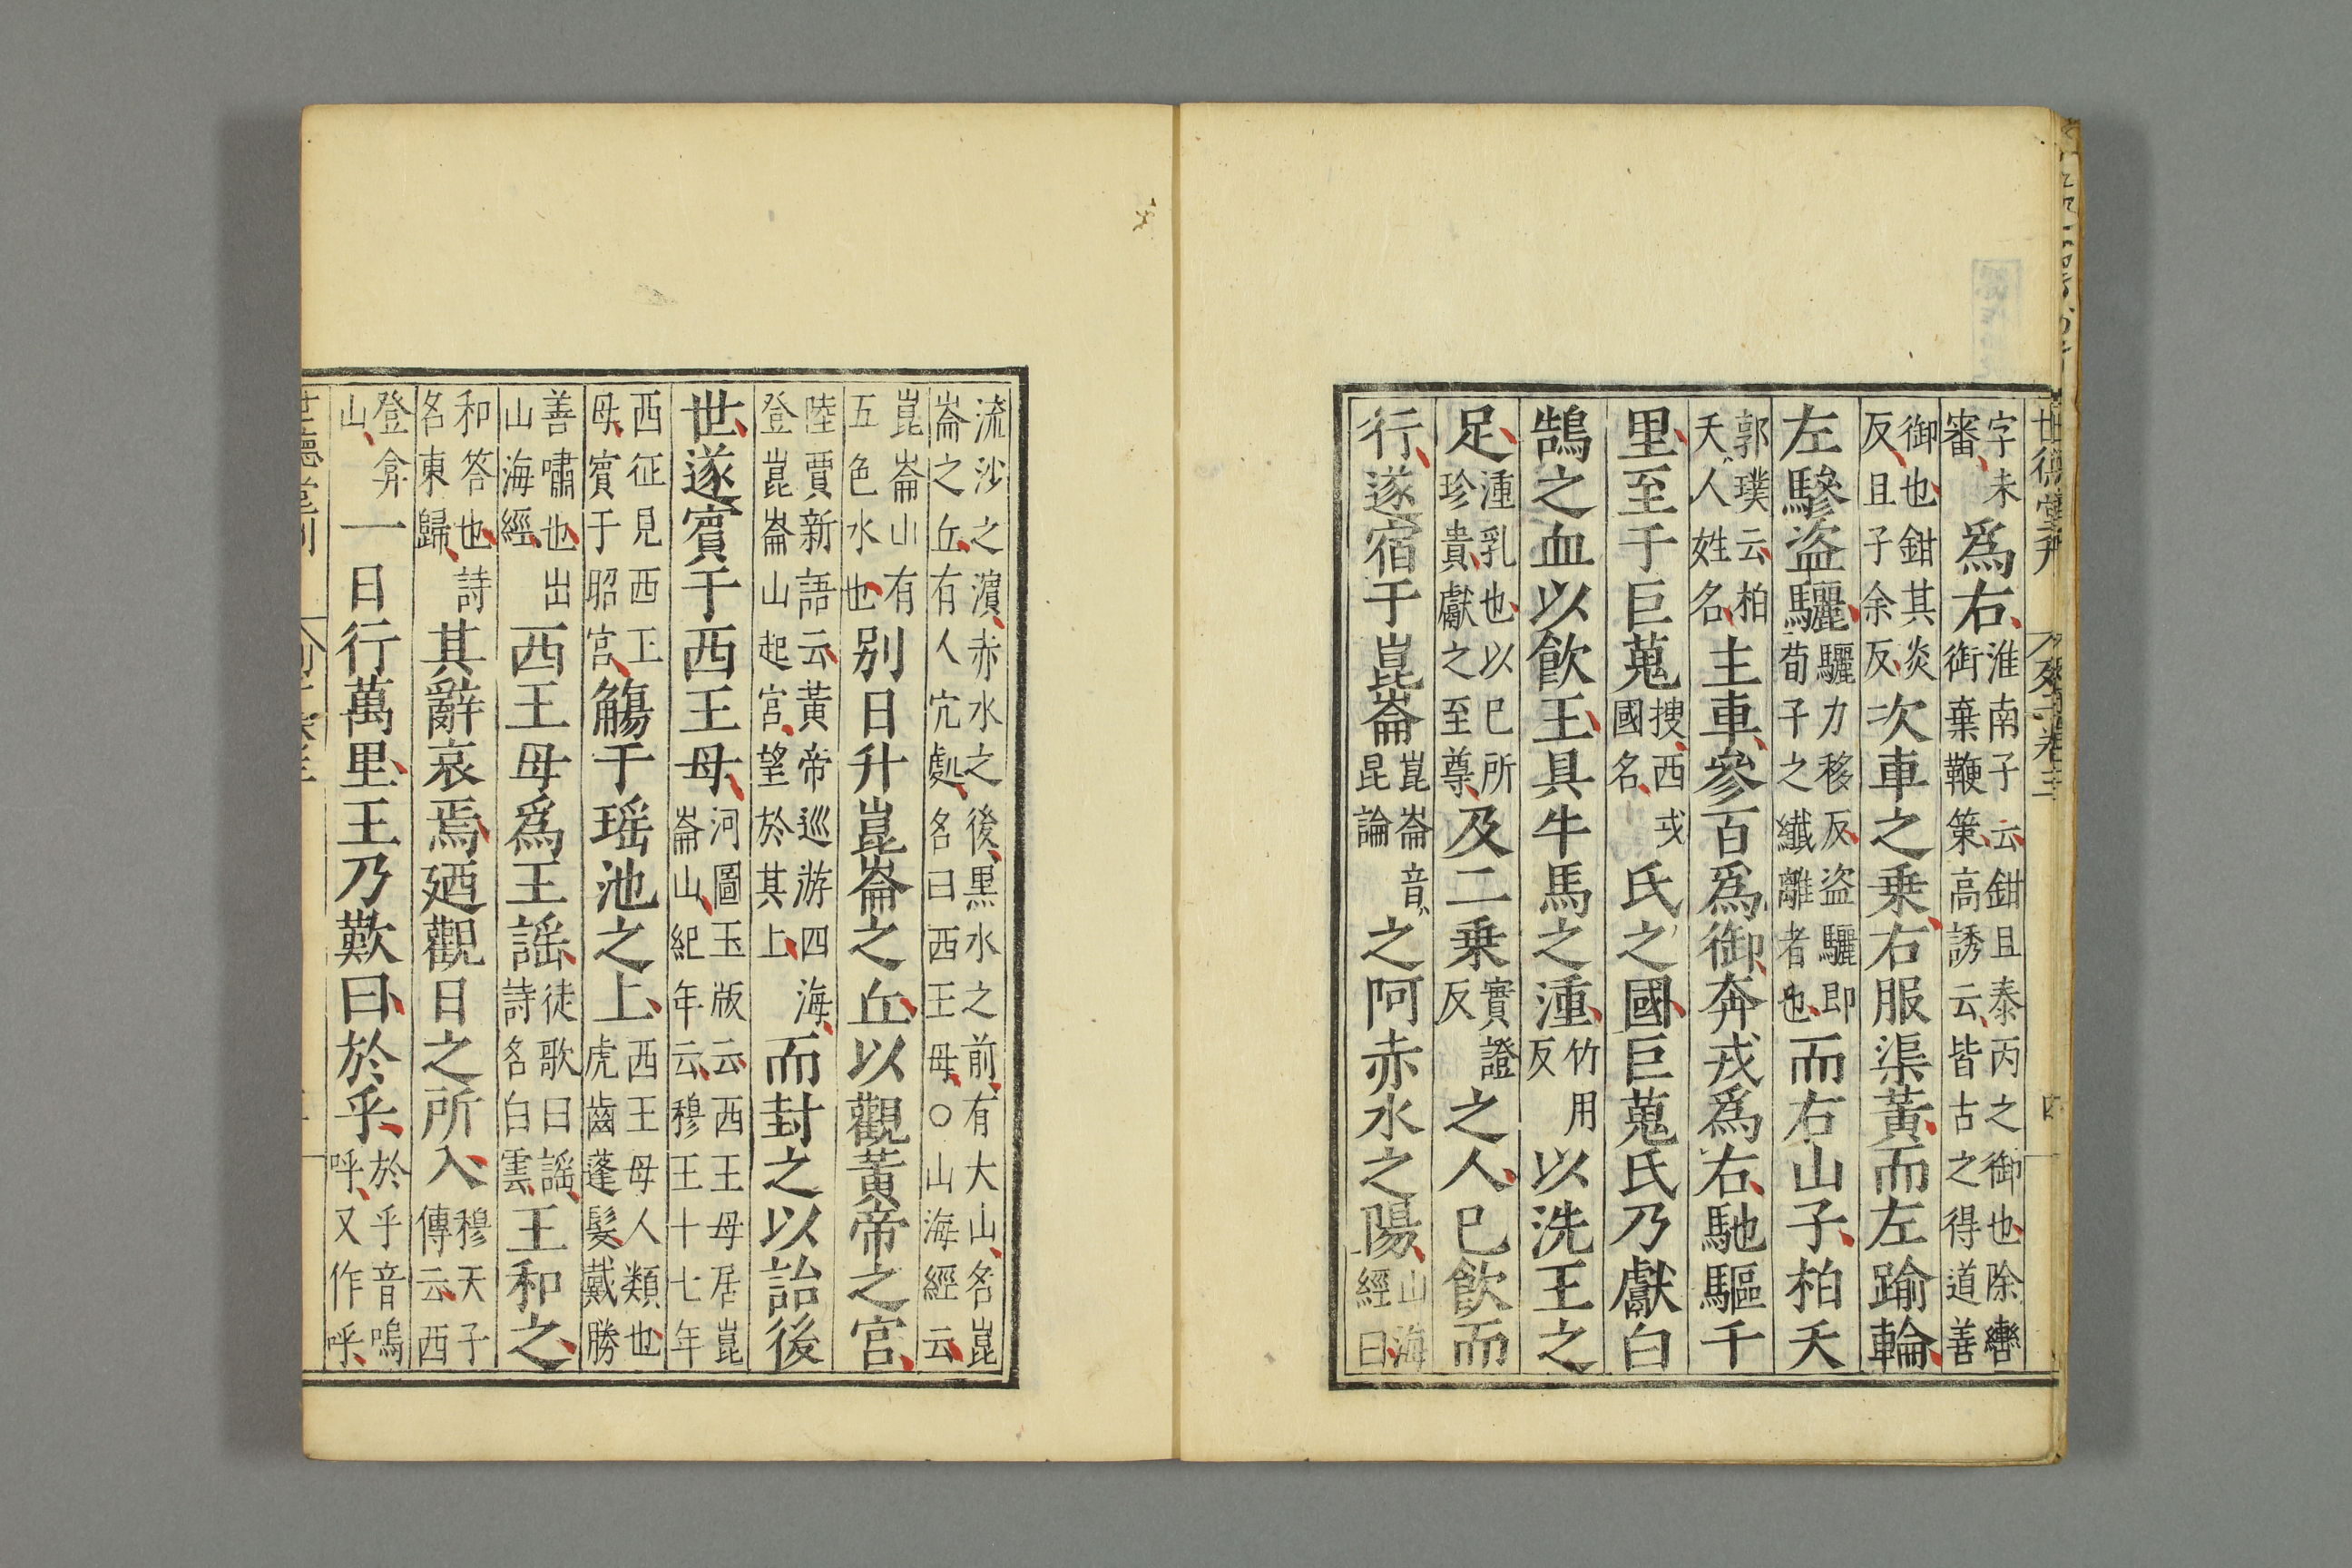 世德堂刊 列子卷三 四
字未審爲右淮南子云鉗且泰丙之御也除轡銜棄鞭策高誘云皆古之得道善
御也鉗其炎反且子余反次車之乗右服渠黃而左踰輪
左驂盜驪驪力移反盜驪即荀子之纖離者也而右山子柏夭
郭璞云柏夭人姓名主車參百爲御奔戎爲右馳驅千
里至于巨蒐搜西戎國名氏之國巨蒐氏乃獻白
鵠之血以飮王具牛馬之湩竹用反以洗王之
足湩乳也以己所珍貴獻之至尊及二乗實證反之人已飮而
行遂宿于崑崙崑崙音昆論之阿赤水之陽山海經曰
流沙之濵赤水之後黒水之前有大山名崑崙之丘有人穴處名曰西王母○山海經云
崑崙山有五色水也别日升崑崙之丘以觀黃帝之宮
陸賈新語云黃帝巡游四海登崑崙山起宮望於其上而封之以詒後
世遂賓于西王母河圖玉版云西王母居崑崙山紀年云穆王十七年
西征見西王母賓于昭宮觴于瑶池之上西王母人類也虎齒蓬髮戴勝
善嘯也出山海經西王母爲王謡徒歌曰謡詩名白雲王和之
和答也詩名東歸其辭哀焉廼觀日之所入穆天子傳云西
登弇山一日行萬里王乃歎曰於乎於乎音嗚呼又作呼